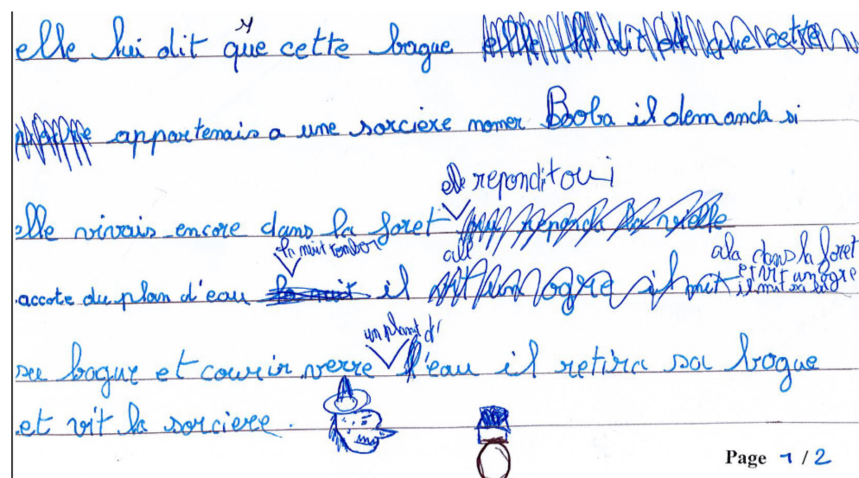 elle lui dit que cette bague
appartenais a une sorciere nomer Booba il demanda si
elle reponditoui
elle vivais encore dans la foret
la nuit tomber
ala dans la foret
et vit un ogre
accote du plan d'eau il
il mit sa bag
un plant d'
sa bague et courir verre l'eau il retira sa bague
et vit la sorciere.
Page 1 / 2